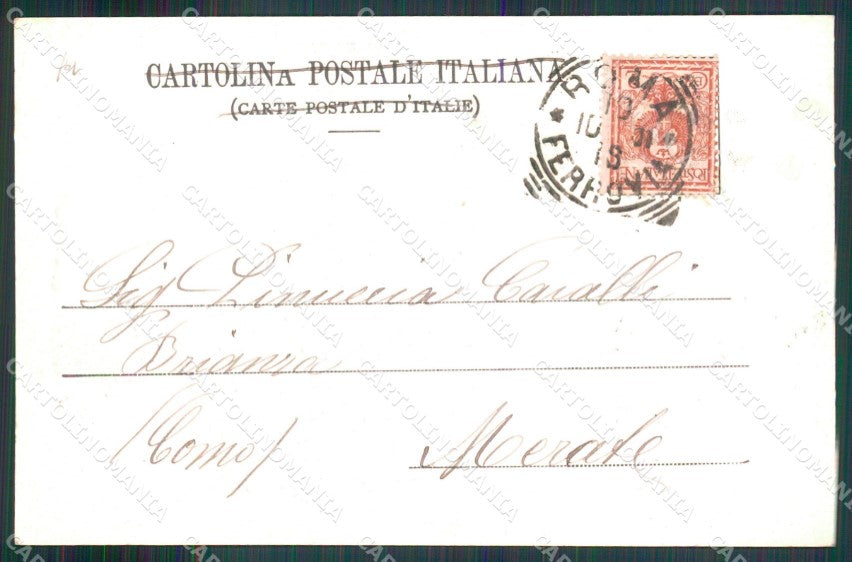 CARTOLINA POSTALE ITALIANA
(CARTE POSTALE D'ITALIE)
ROMA
10
10 01
18
* FERROVIA *
Sig Linuccia Cavalli
Brianza
(Como) Merate
CARTOLINOMANIA